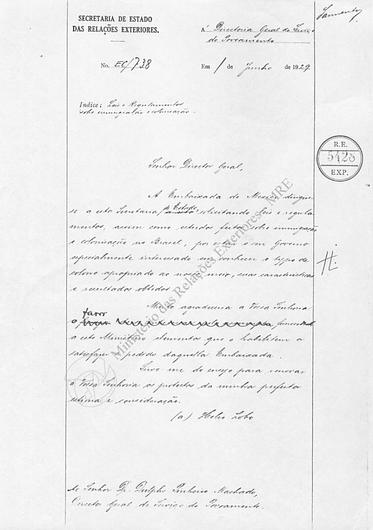 SECRETARIA DE ESTADO
DAS RELAÇÕES EXTERIORES.
Á Directoria Geral do Serviço
de Povoamento
No. EC/738
Em 1 de Junho de 1929.
Indice: Leis e Regulamentos
sobre immigração e colonisação.
R.E.
5428
EXP.
Senhor Director Geral,
A Embaixada do Mexico dirigiu-
se a esta Secretaria de Estado solicitando leis e regula-
mentos, assim como estudos feitos sobre immigração
e colonisação no Brasil, por estar o seu Governo
especialmente interessado em conhecer o typo de
colono apropriado ao nosso meio, suas caracteristicas
e resultados obtidos.
Muito agradeceria a Vossa Senhoria
o favor
a este Ministerio elementos que o habilitem a
satisfazer o pedido daquella Embaixada.
Sirvo-me do ensejo para renovar
a Vossa Senhoria os protestos da minha perfeita
estima e consideração.
(a) Helio Lobo
Ao Senhor Dr. Dulpho Pinheiro Machado,
Director Geral do Serviço de Povoamento
Ministério das Relações Exteriores - MRE